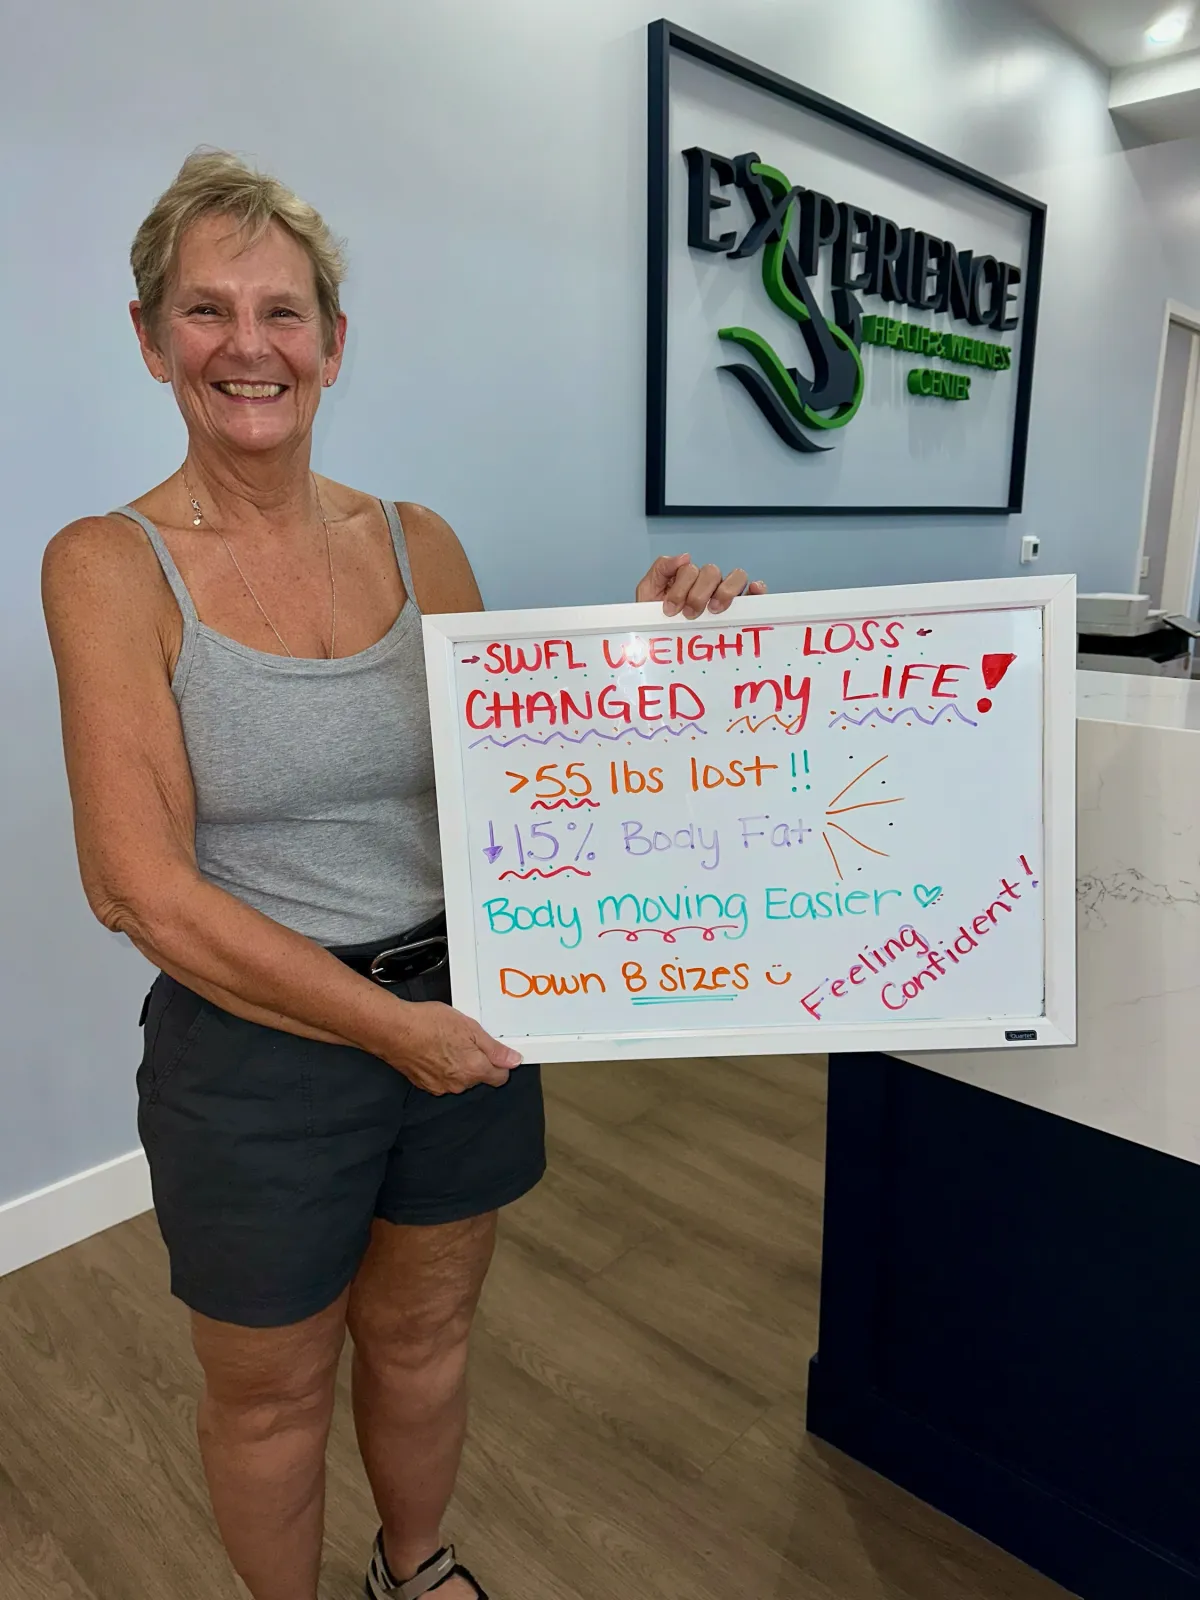 EXPERIENCE
HEALTH & WELLNESS
CENTER
SWFL WEIGHT LOSS
CHANGED my LIFE!
>55 lbs lost!!
↓15% Body Fat
Body moving Easier ♡
Down 8 sizes
Feeling
Confident!
Quartet